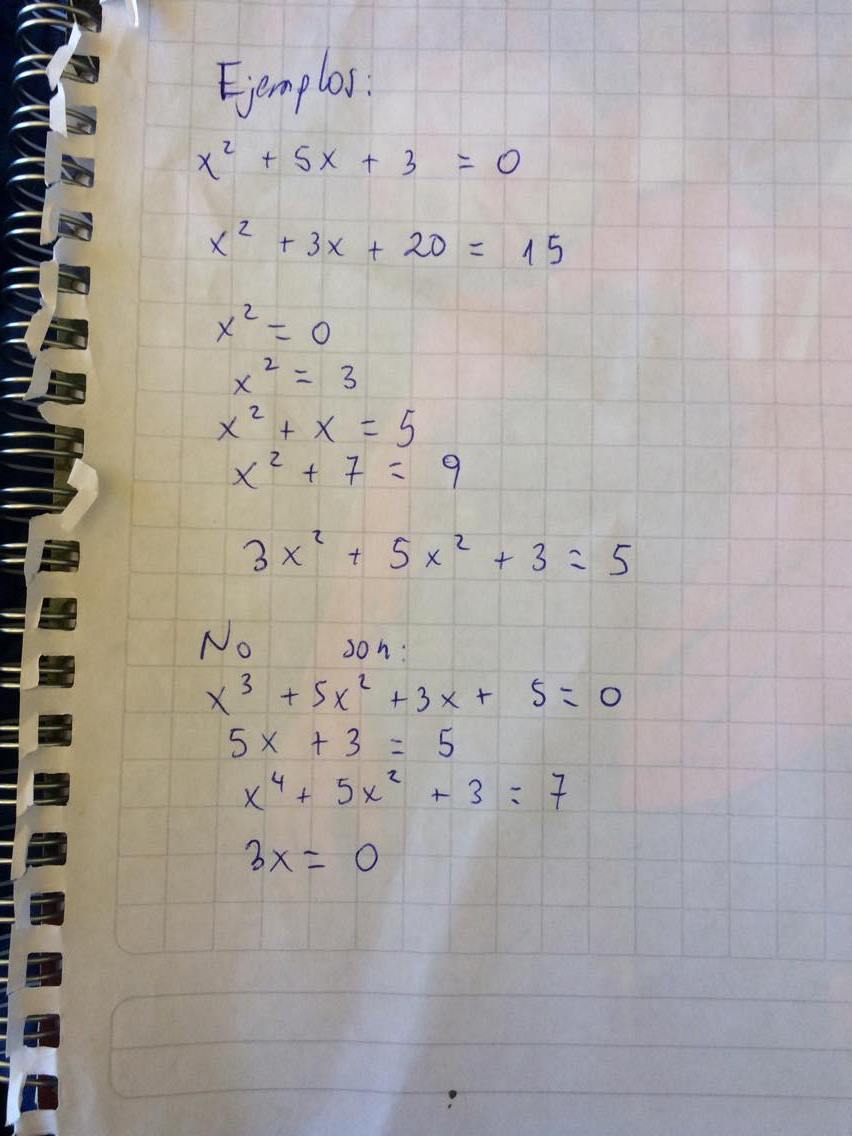 Ejemplos:
x² + 5x + 3 = 0
x² + 3x + 20 = 15
x² = 0
x² = 3
x² + x = 5
x² + 7 = 9
3x² + 5x² + 3 = 5
No son:
x³ + 5x² + 3x + 5 = 0
5x + 3 = 5
x⁴ + 5x² + 3 = 7
3x = 0